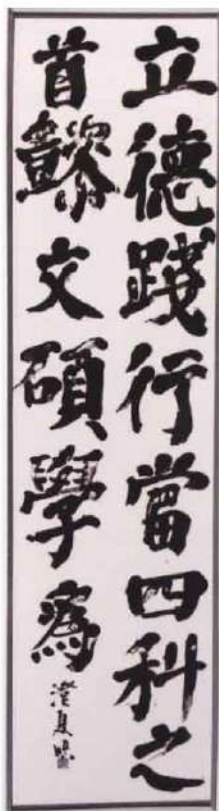 立德踐行當四科之
首懿文碩學為
澄夏臨